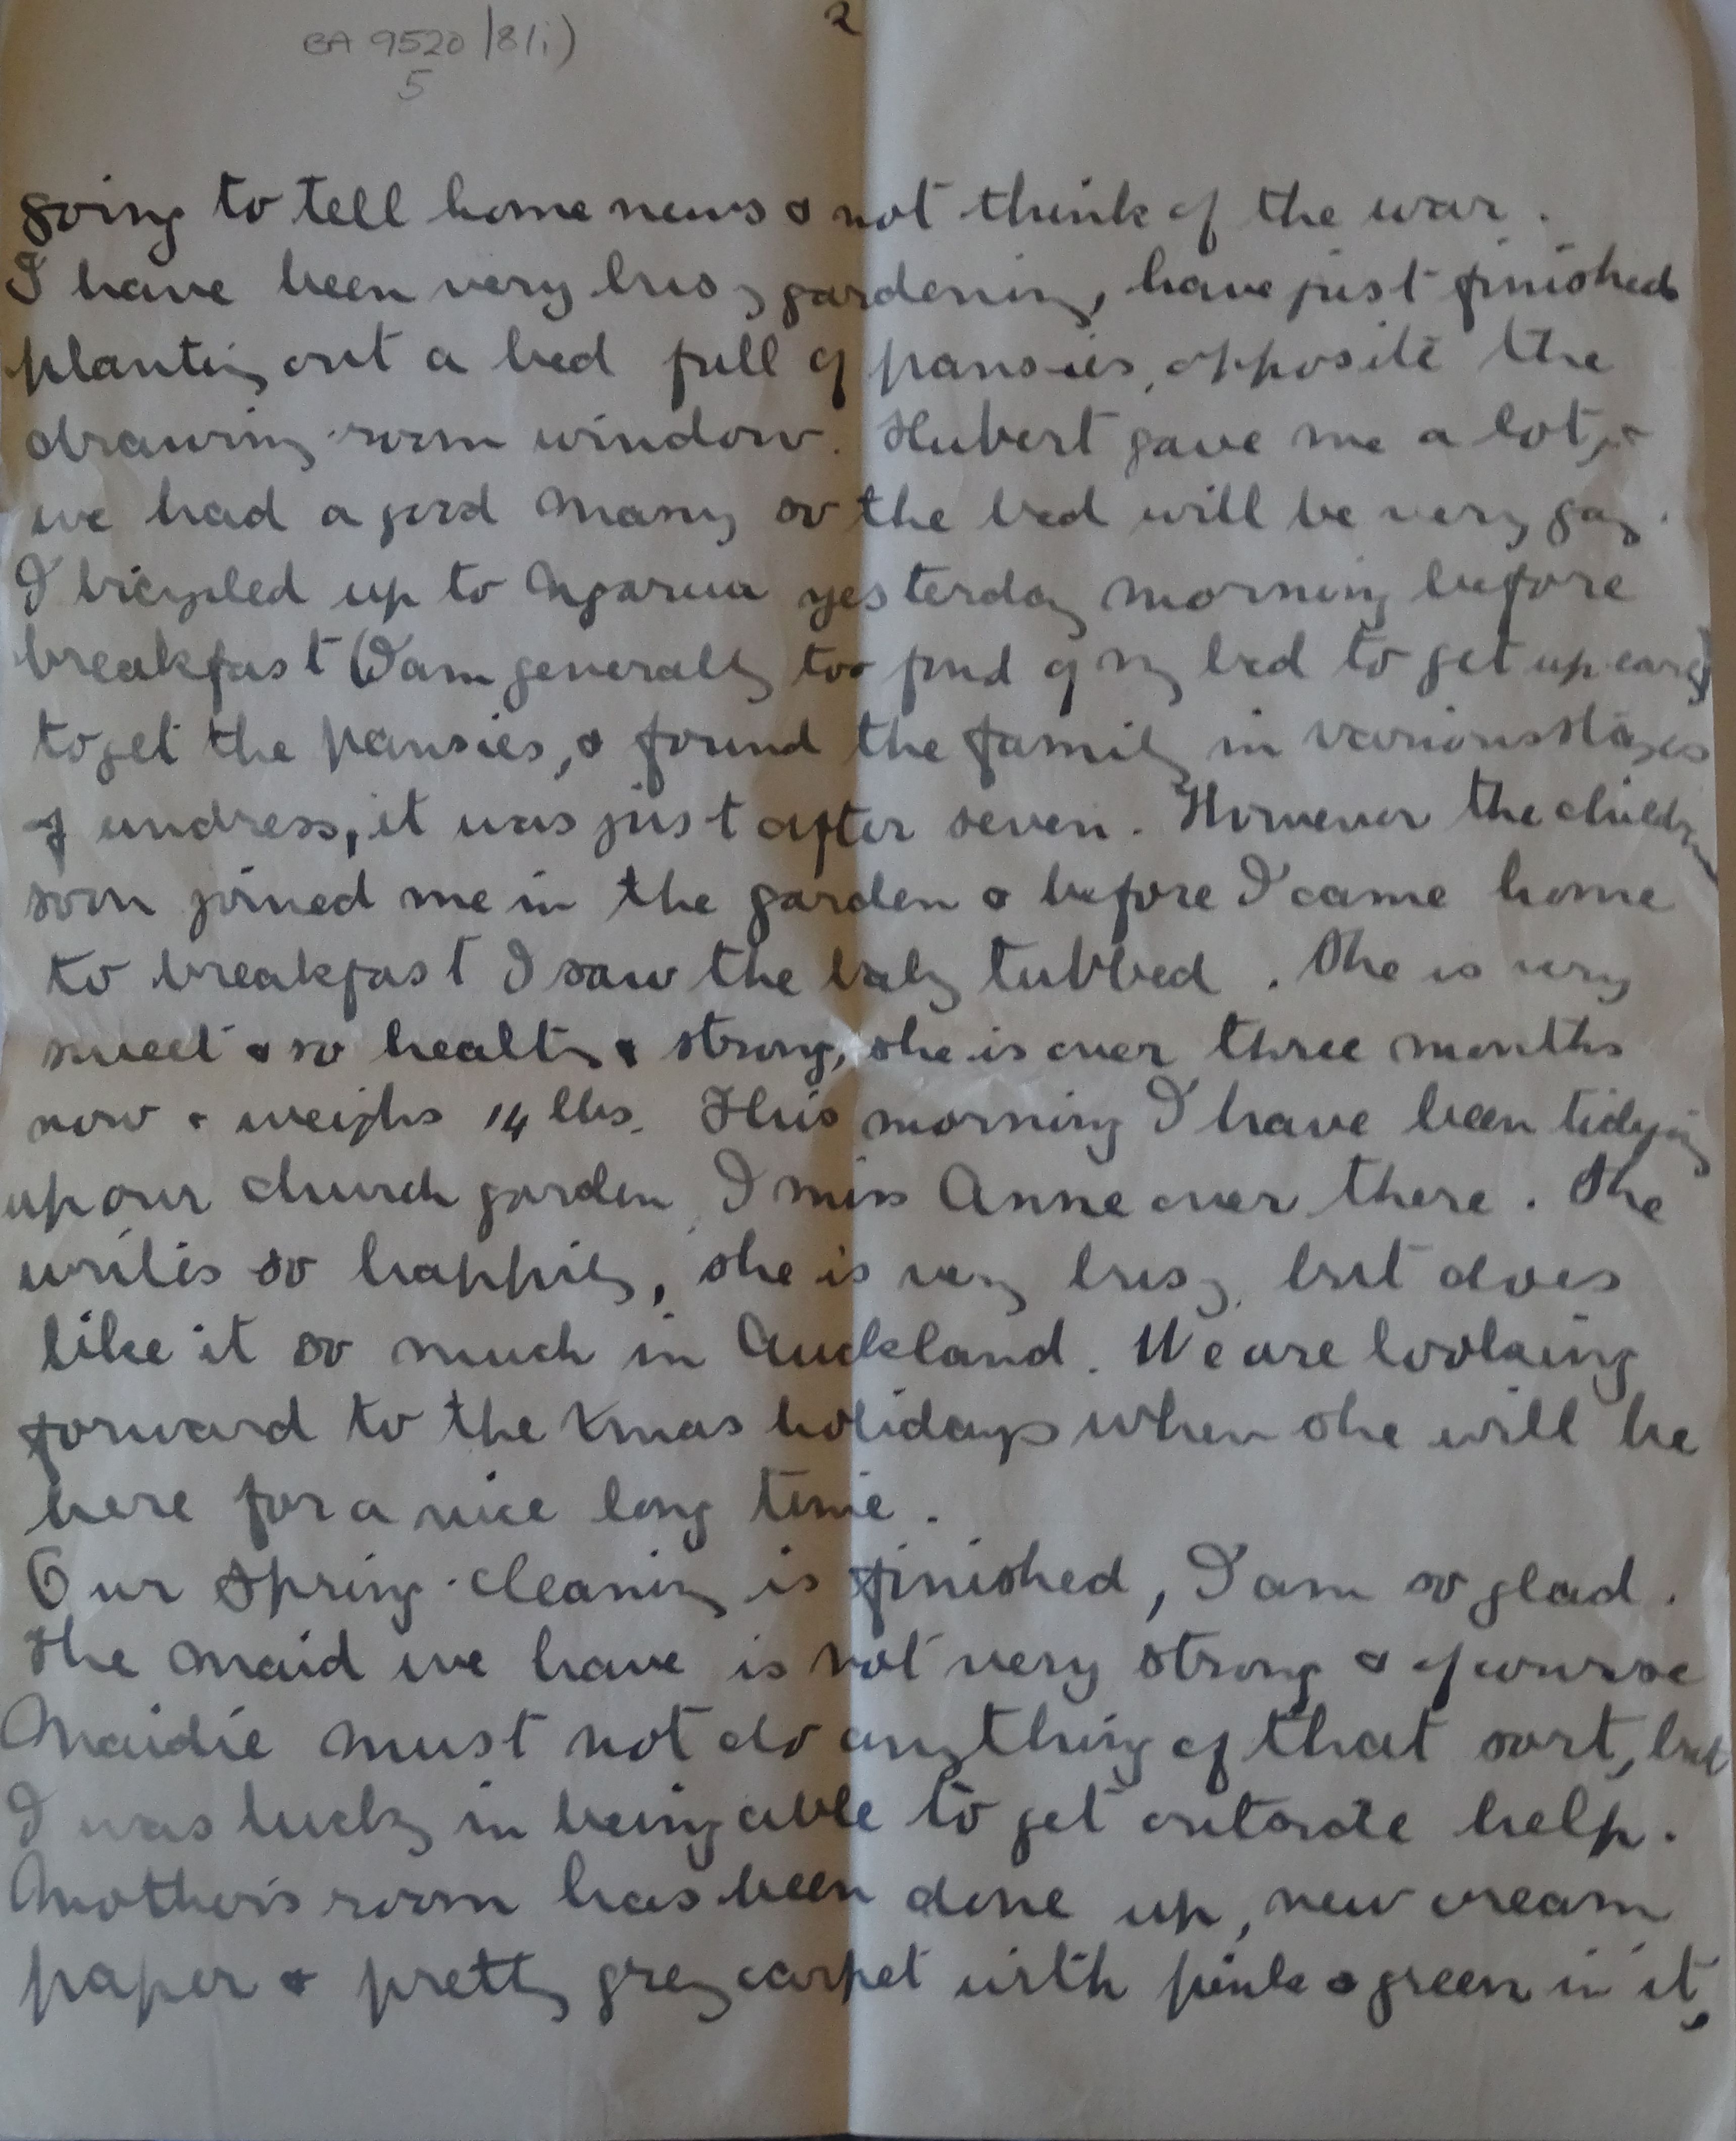 2
CA 9520/8(i)
5
going to tell home news & not think of the war.
I have been very busy gardening, have just finished
planting out a bed full of pansies, opposite the
drawing-room window. Hubert gave me a lot, &
we had a good many so the bed will be very gay.
I bicycled up to Ngarua yesterday morning before
breakfast (I am generally too fond of my bed to get up early)
to get the pansies, & found the family in various stages
of undress, it was just after seven. However the children
soon joined me in the garden & before I came home
to breakfast I saw the baby tubbed. She is very
sweet & so healthy & strong, she is over three months
now & weighs 14 lbs. This morning I have been tidying
up our church garden, I miss Anne over there. She
writes so happily, she is very busy, but does
like it so much in Auckland. We are looking
forward to the Xmas holidays when she will be
here for a nice long time.
Our Spring-cleaning is finished, I am so glad.
The maid we have is not very strong & of course
Maidie must not do anything of that sort, but
I was lucky in being able to get outside help.
Mother's room has been done up, new cream
paper & pretty grey carpet with pink & green in it,